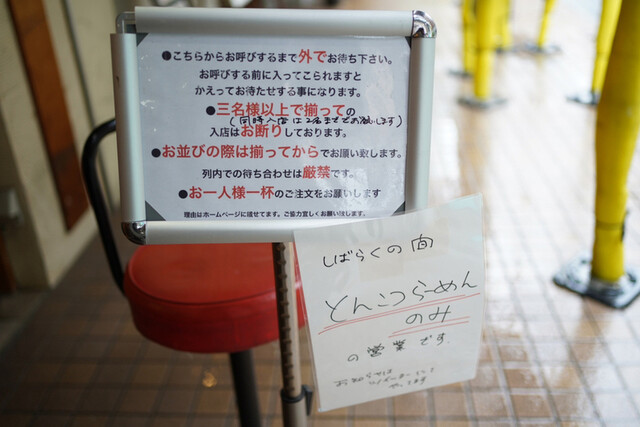 ●こちらからお呼びするまで外でお待ち下さい。
お呼びする前に入ってこられますと
かえってお待たせする事になります。
●三名様以上で揃っての
(同時入店は2名まででお願いします)
入店はお断りしております。
●お並びの際は揃ってからでお願い致します。
列内での待ち合わせは厳禁です。
●お一人様一杯のご注文をお願いします
理由はホームページに載せてます。ご協力宜しくお願い致します。
しばらくの間
とんこつらーめん
のみ
の営業です。